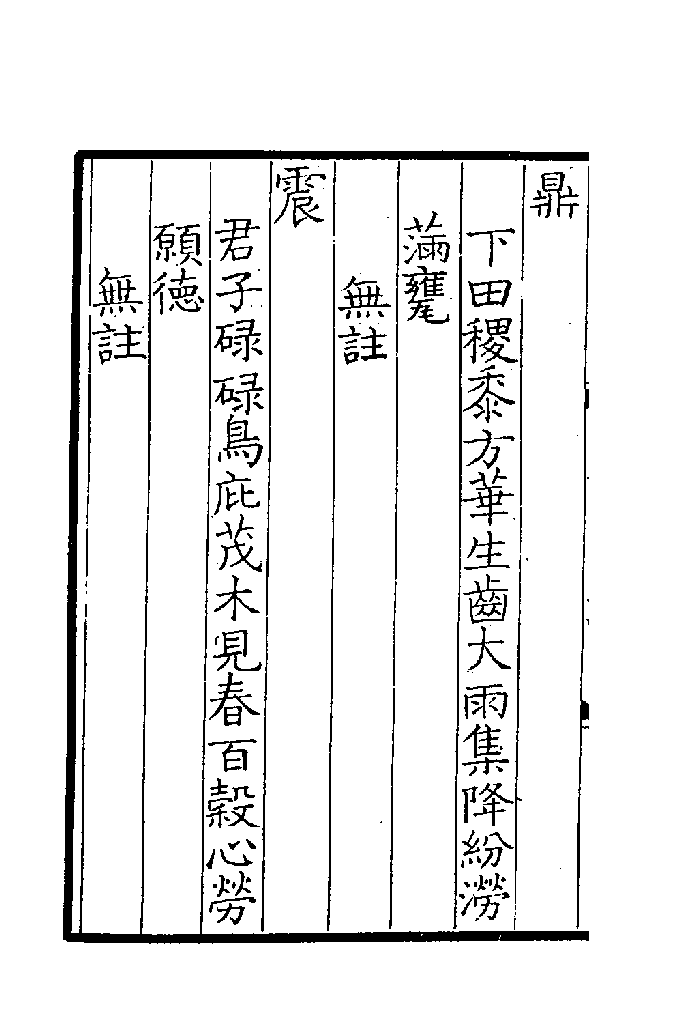 鼎
下田稷黍方華生齒大雨集降紛澇
滿甕
無註
震
君子碌碌鳥庇茂木見春百穀心勞
願德
無註